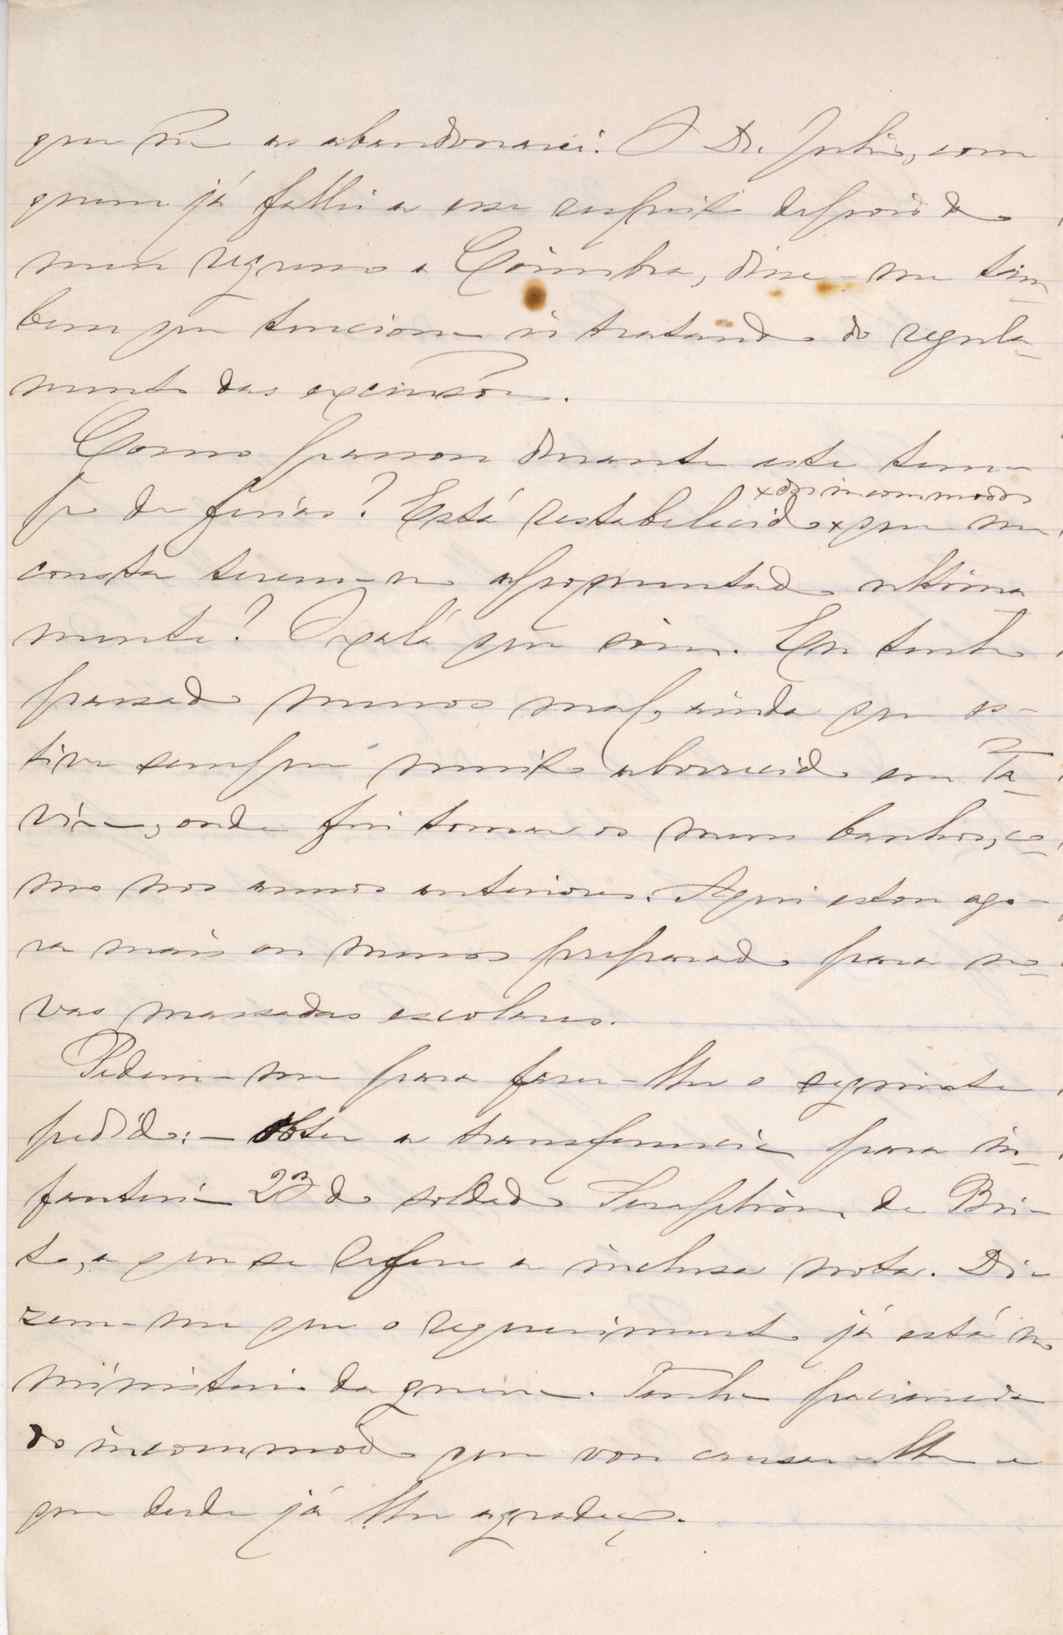 que não as abandonarei. O Dr. Julio, com
quem já fallei a esse respeito depois do
meu regresso a Coimbra, disse-me tam-
bem que tenciona ir tratando do regula-
mento das excursões.
Como passou durante este tem-
po de ferias? Está restabelecido × que me
× dos incommodos
consta terem-no apoquentado ultima
mente? Oxalá que sim. Eu tenho
passado menos mal, ainda que es-
tive sempre muito aborrecido em Ta-
vira, onde fui tomar os meus banhos, co-
mo nos annos anteriores. Aqui estou ago-
ra mais ou menos preparado para no-
vas massadas escolares.
Pedem-me para fazer-lhe o seguinte
pedido: – obter a transferencia para in-
fanteria 23 do soldado Seraphim de Bri-
to, a que se refere a inclusa nota. Di-
zem-me que o requerimento já está no
ministerio da guerra. Tenha paciencia
do incommodo que vou causar-lhe e
que desde já lhe agradeço.